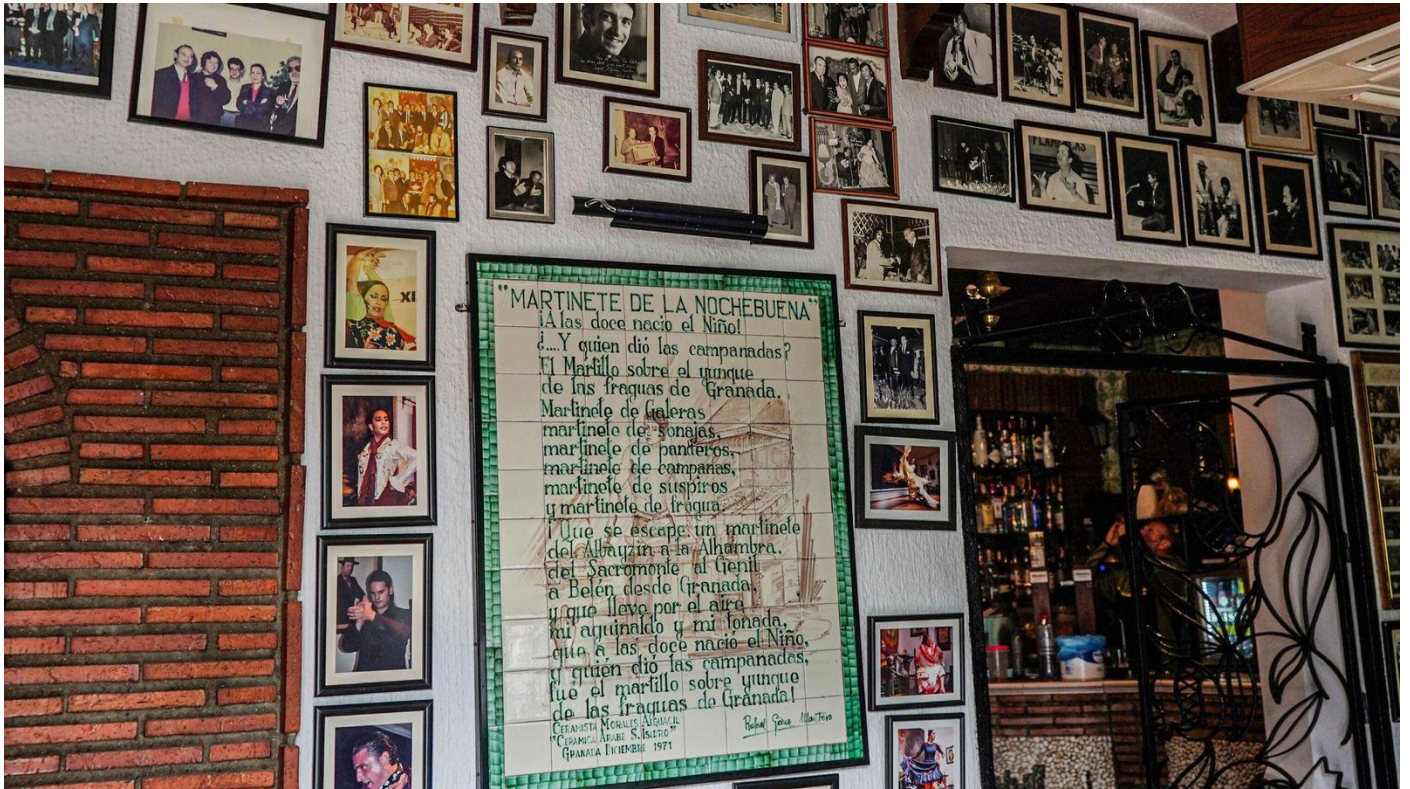 XI
FLAMENCAS
"MARTINETE DE LA NOCHEBUENA"
¡A las doce nacio el Niño!
¿....Y quien dió las campanadas?
El Martillo sobre el yunque
de las fraguas de Granada.
Martinete de Galeras
martinete de sonajas,
martinete de panderos,
martinete de campanas,
martinete de suspiros
y martinete de fragua.
¡Que se escape un martinete
del Albayzin a la Alhambra,
del Sacromonte al Genil
a Belén desde Granada,
y que lleve por el aire
mi aguinaldo y mi tonada,
que a las doce nació el Niño,
y quién dió las campanadas,
fue el martillo sobre yunque
de las fraguas de Granada!
CERAMISTA MORALES ALGUACIL
"CERAMICA ARABE S. ISIDRO"
GRANADA DICIEMBRE 1971